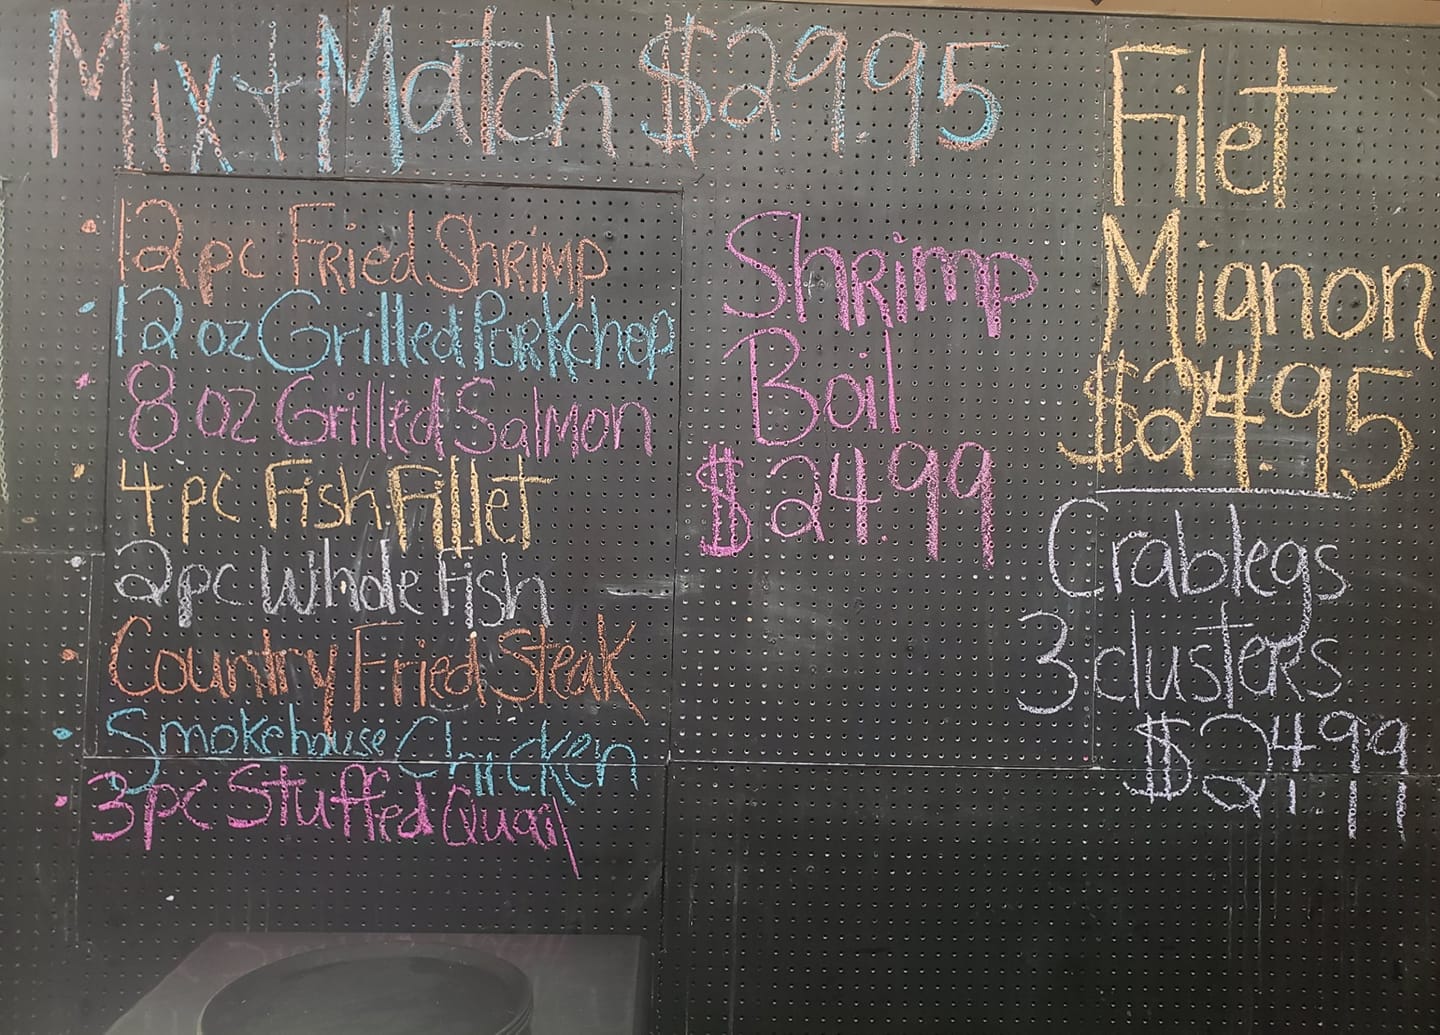 Mix + Match $29.95
• 12 pc Fried Shrimp
• 12 oz Grilled Porkchop
• 8 oz Grilled Salmon
• 4 pc Fish Fillet
• 2 pc Whole Fish
• Country Fried Steak
• Smokehouse Chicken
• 3 pc Stuffed Quail
Shrimp
Boil
$24.99
Filet
Mignon
$24.95
Crablegs
3 clusters
$24.99